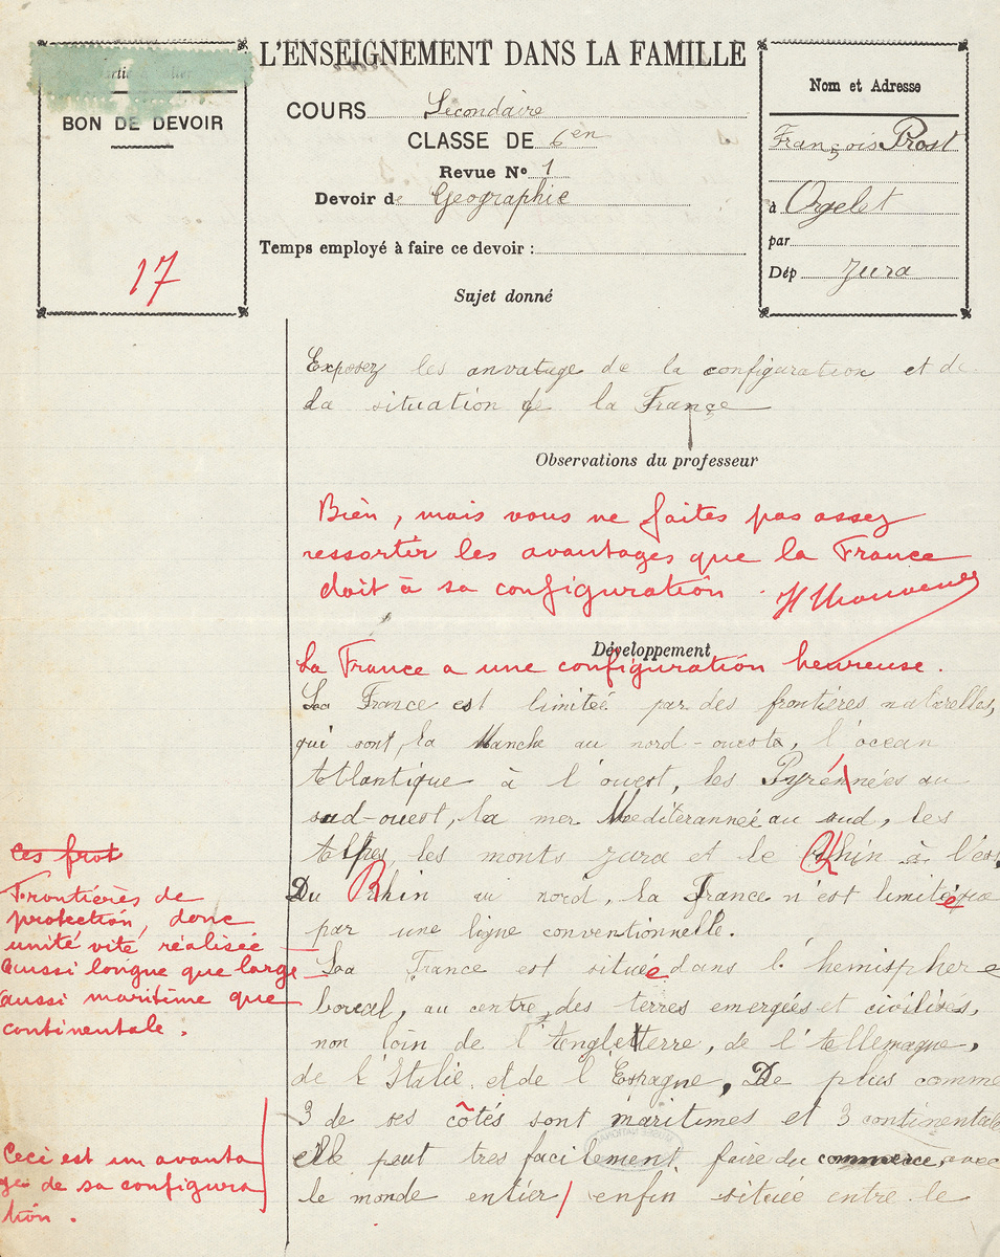 L'ENSEIGNEMENT DANS LA FAMILLE
BON DE DEVOIR
17
COURS Secondaire
CLASSE DE 6en
Revue No 1
Devoir de Geographie
Temps employé à faire ce devoir :
Nom et Adresse
François Prost
à Orgelet
par
Dép Jura
Sujet donné
Exposez les anvatage de la configuration et de
la situation de la France
Observations du professeur
Bien, mais vous ne faites pas assez
ressortir les avantages que la France
doit à sa configuration.
Développement
La France a une configuration heureuse.
La France est limitée par des frontières naturelles,
qui sont, la Manche au nord-oueste, l'ocean
Atlantique à l'ouest, les Pyrénnées au
sud-ouest, la mer Mediterannée au sud, les
Alpes, les monts Jura et le Rhin à l'est
Du Rhin au nord, la France n'est limitée que
par une ligne conventionnelle.
La France est située dans l'hemisphere
boreal, au centre des terres emergées et civilisés,
non loin de l'Angletterre, de l'Allemagne,
de l'Italie et de l'Espagne, De plus comme
3 de ses côtés sont maritimes et 3 continentale
elle peut tres facilement faire du commerce, avec
le monde entier / enfin située entre le
ces frot
Frontières de
protection, donc
unité vité réalisée
aussi longue que large
aussi maritime que
continentale.
Ceci est un avanta
ge de sa configura
tion.